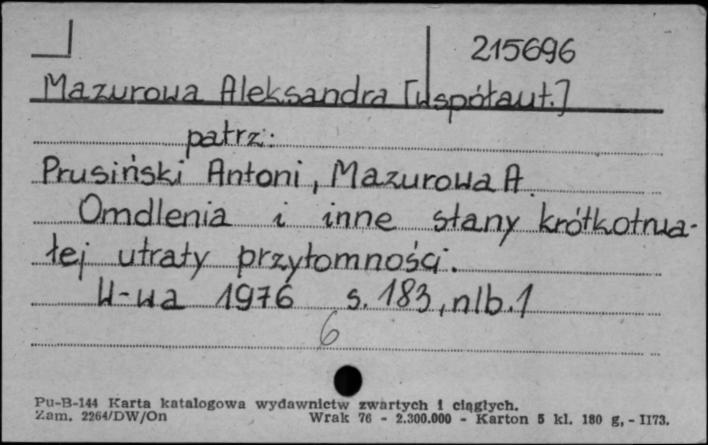 215696
Mazurowa Aleksandra [współaut.]
patrz:
Prusiński Antoni, Mazurowa A.
Omdlenia i inne stany krótkotrwa-
łej utraty przytomności.
W-wa 1976 s. 183, nlb. 1
6
Pu-B-144 Karta katalogowa wydawnictw zwartych i ciągłych.
Zam. 2264/DW/On Wrak 76 - 2.300.000 - Karton 5 kl. 180 g, - II73.